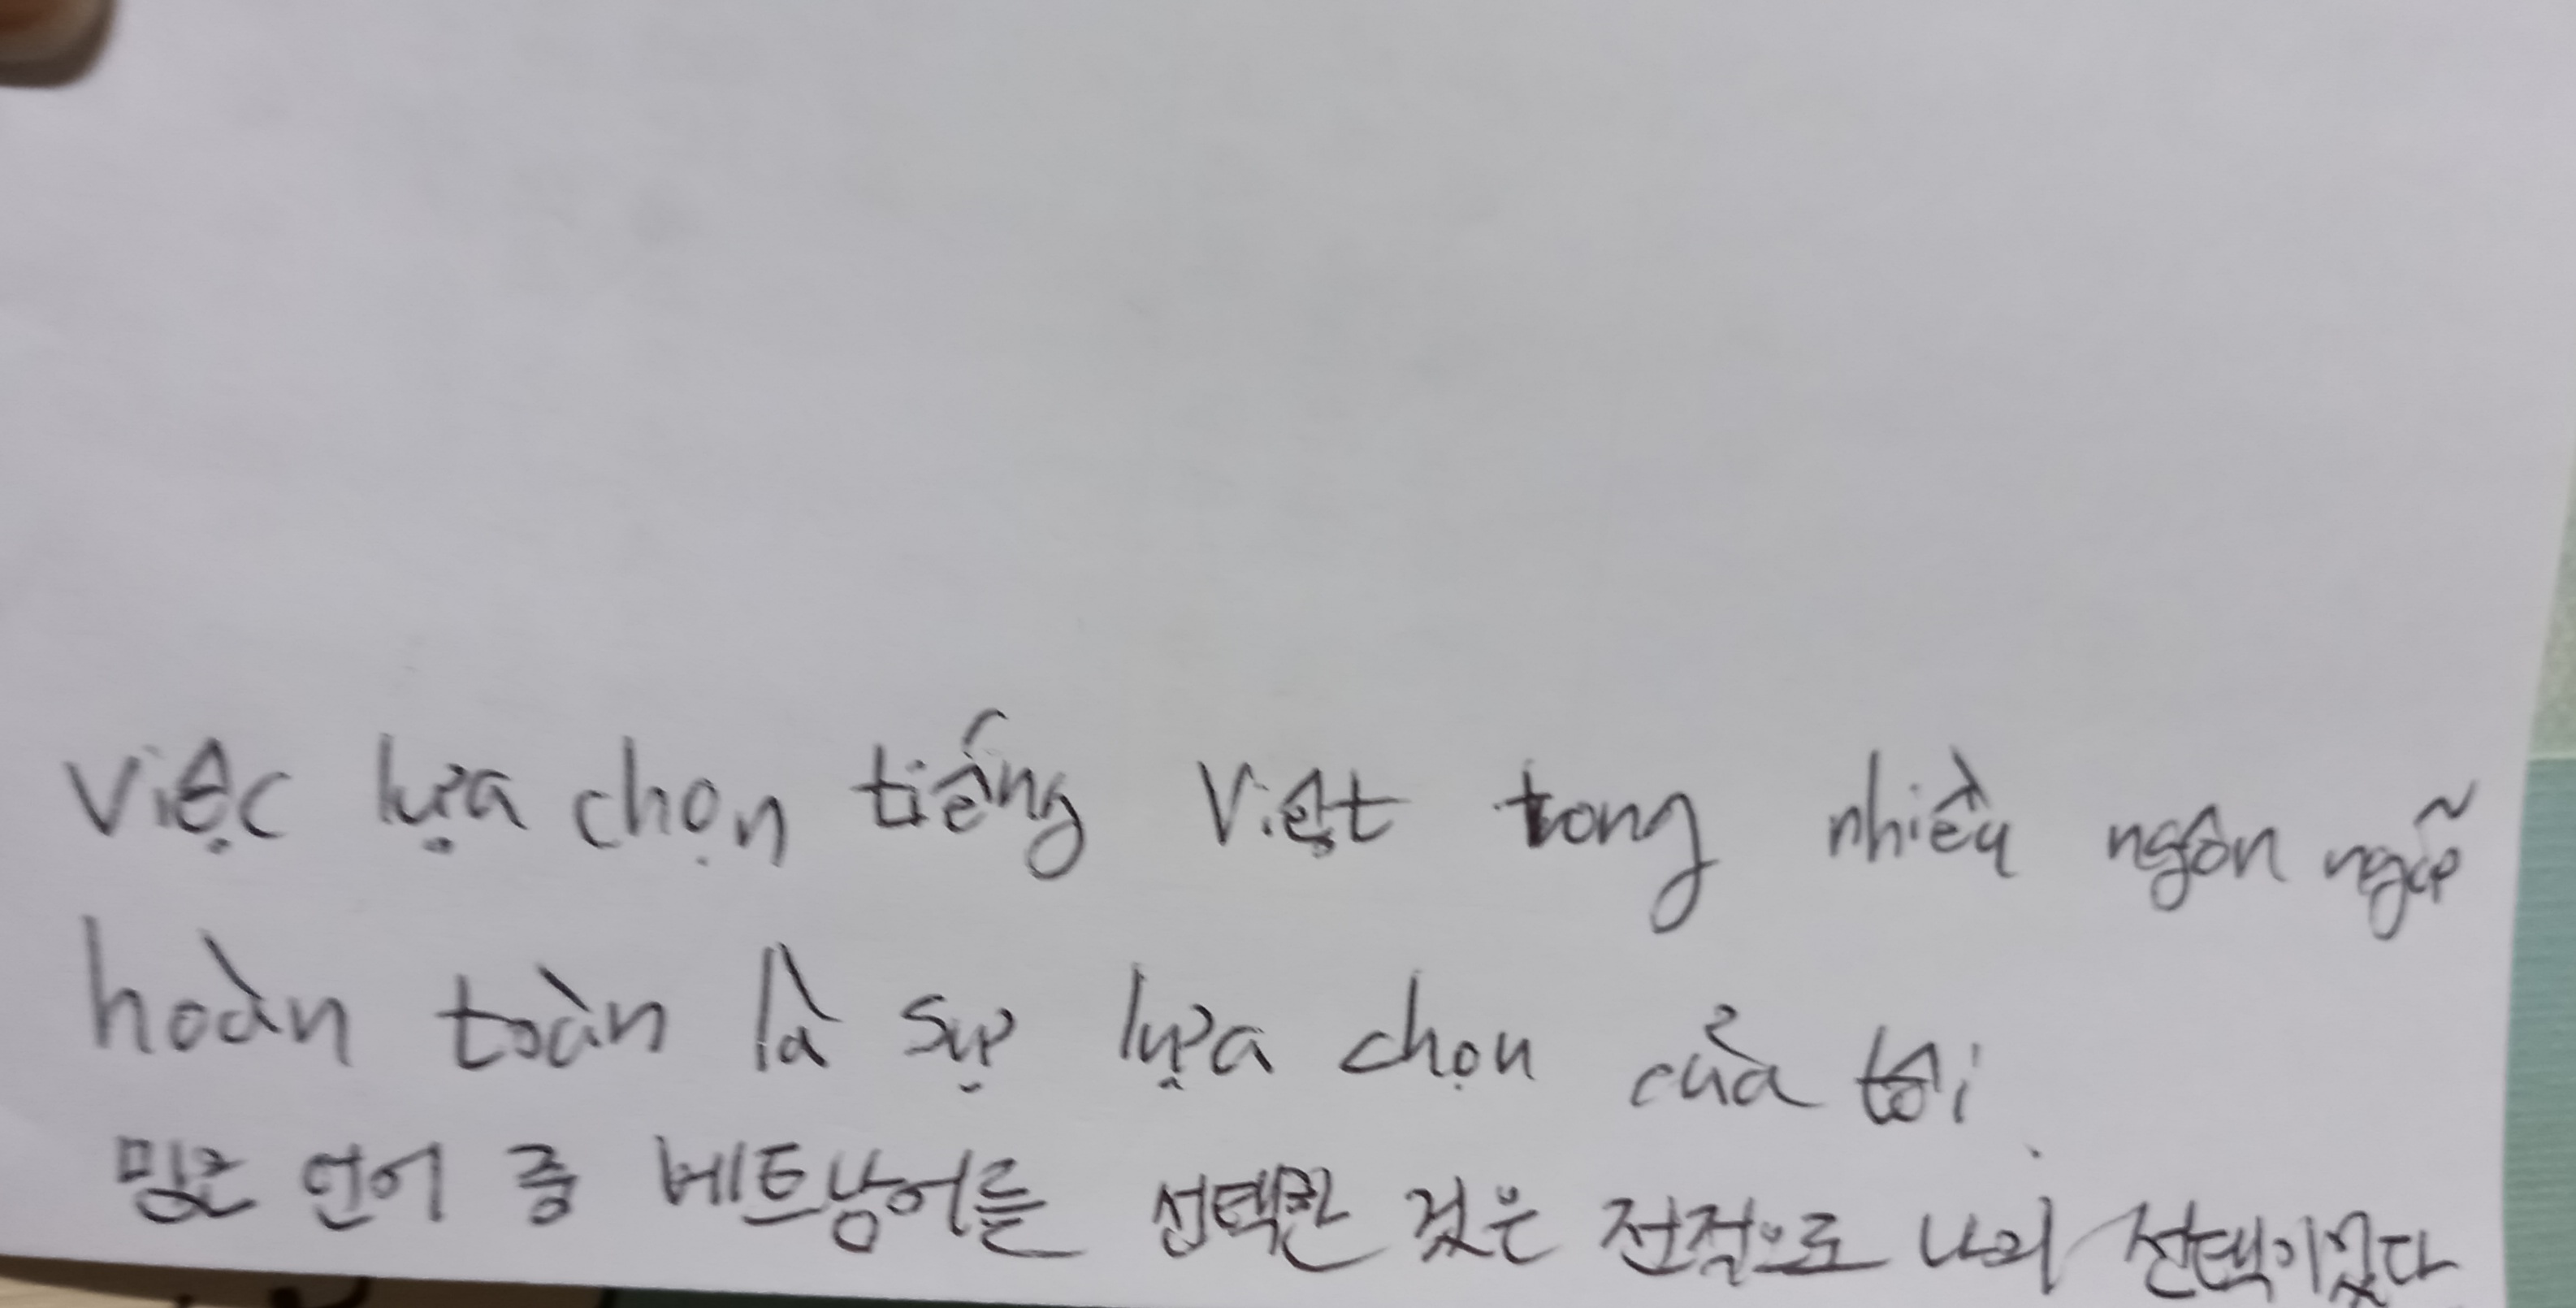 Việc lựa chọn tiếng Việt trong nhiều ngôn ngữ
hoàn toàn là sự lựa chọn của tôi.
많은 언어 중 베트남어를 선택한 것은 전적으로 나의 선택이었다